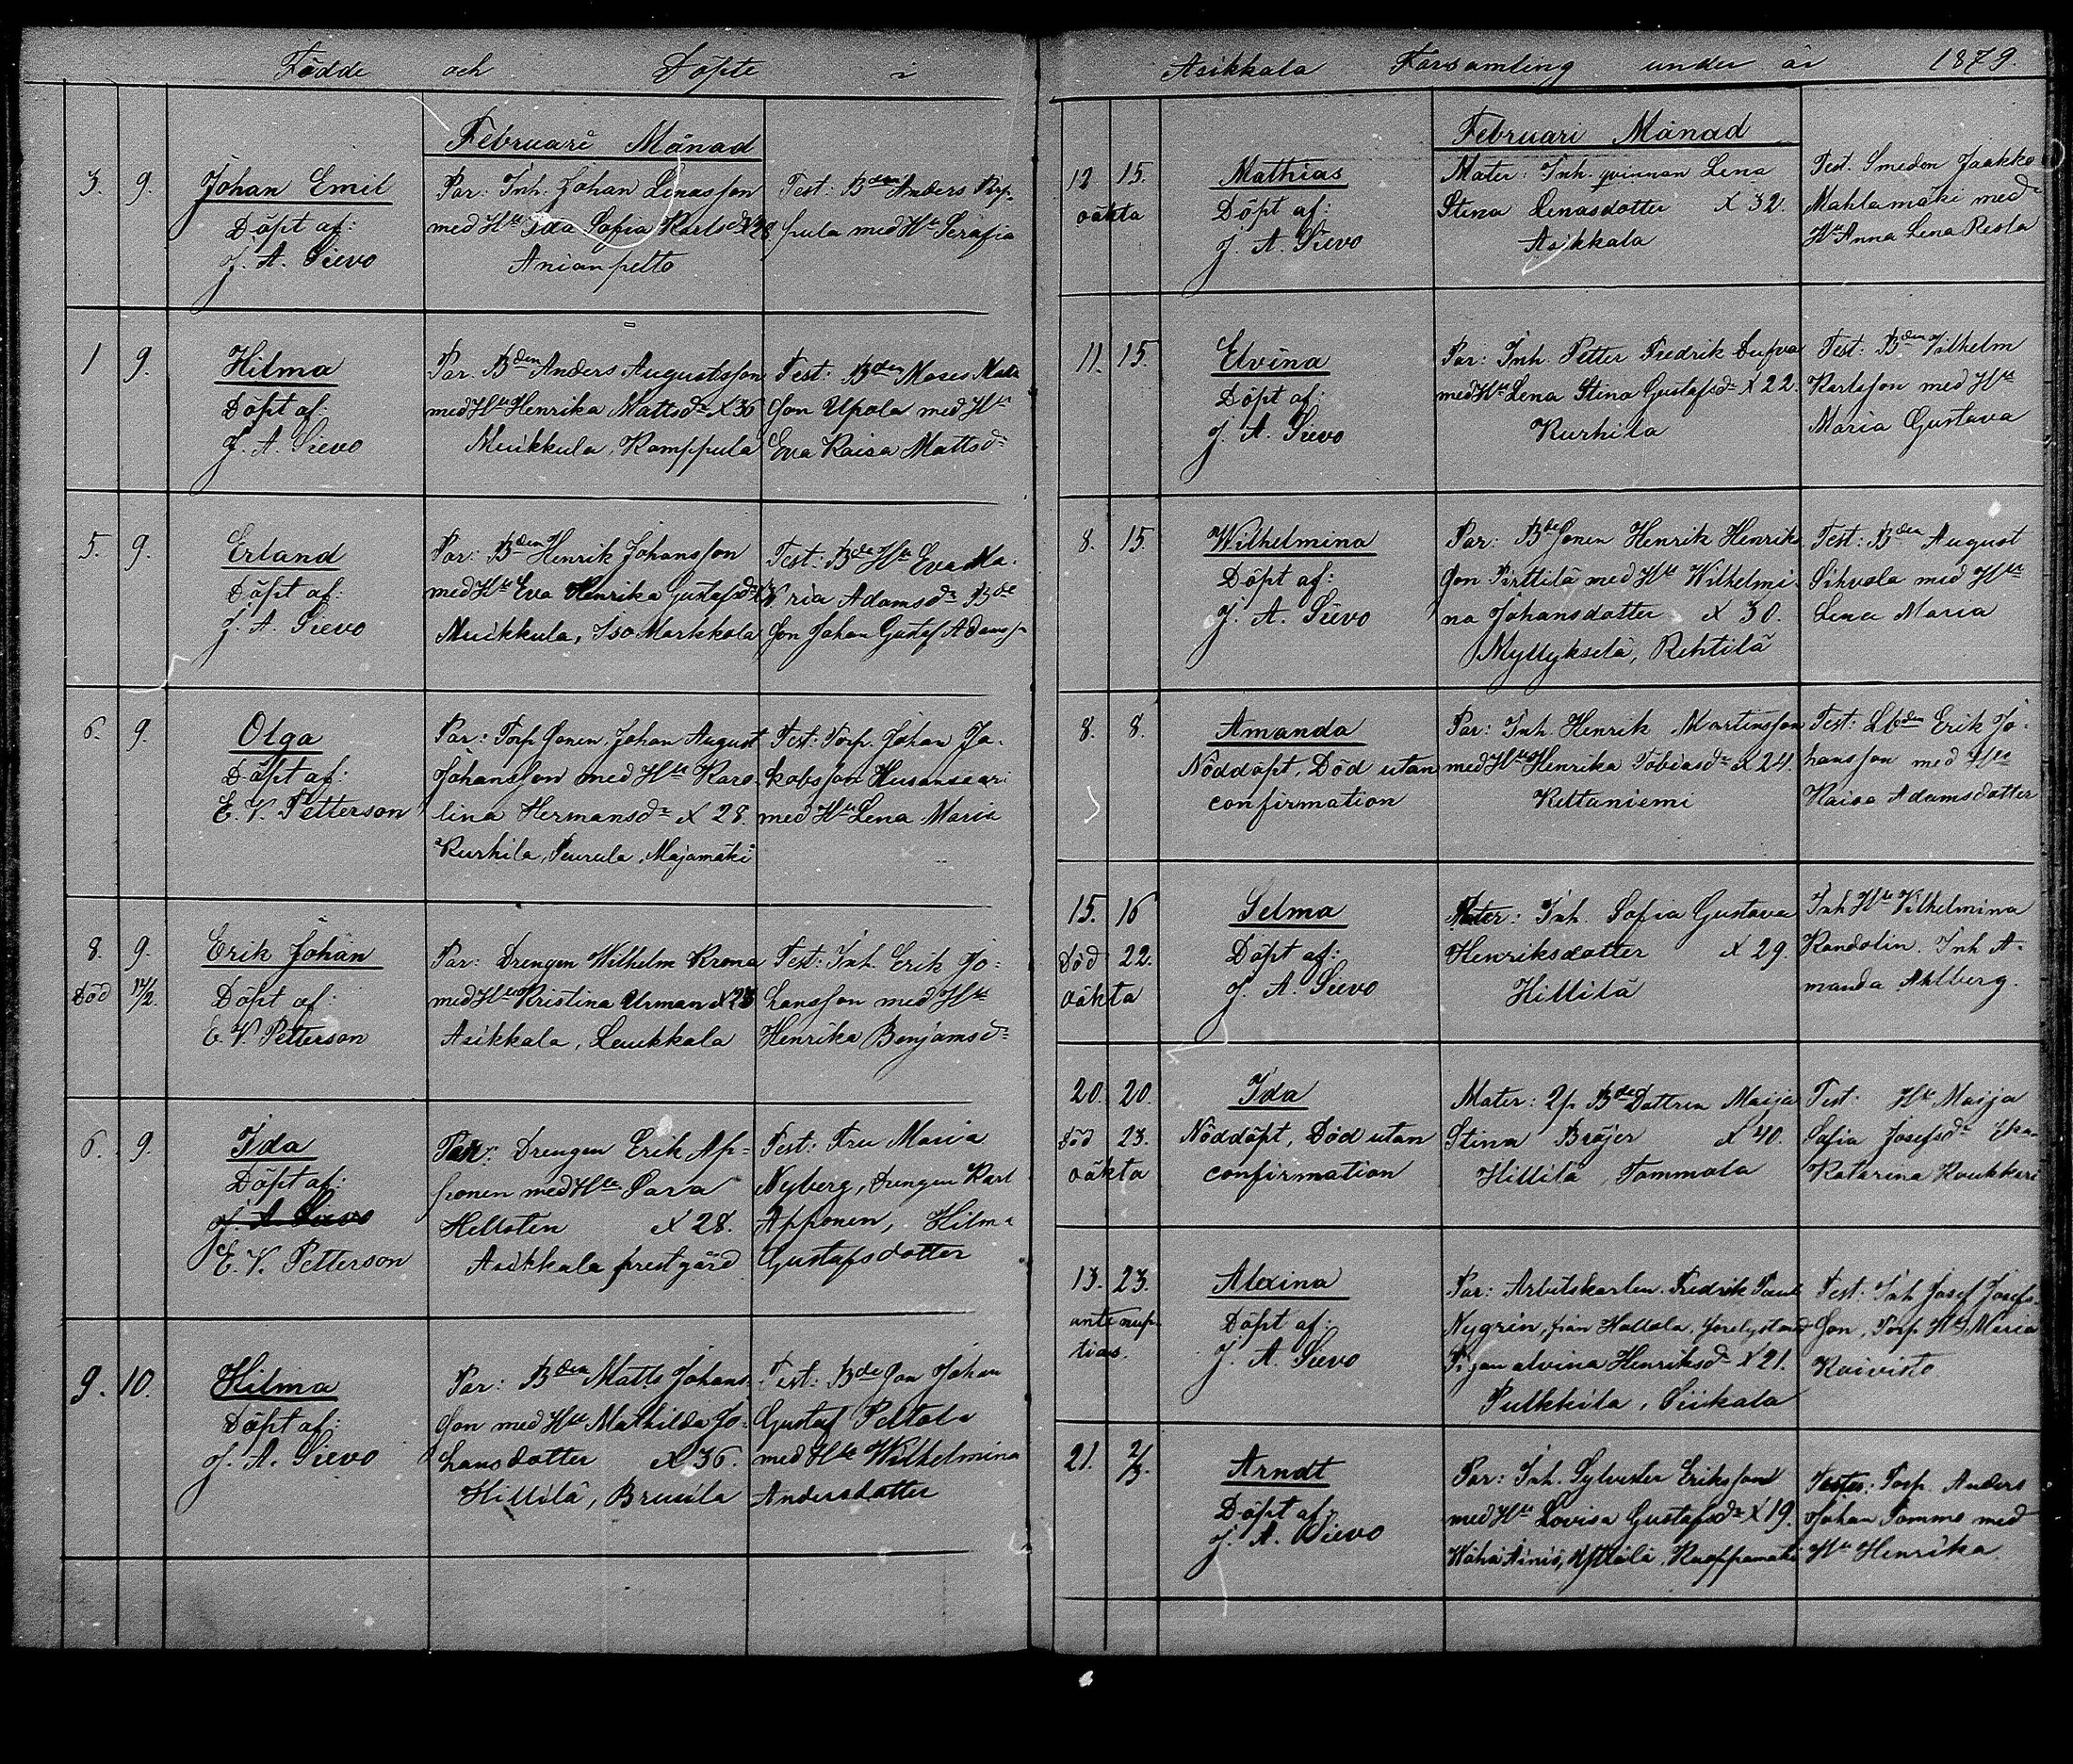 Födde och Döpte i
Februari Månad
3. 9. Johan Emil
Döpt af:
J. A. Sievo
Par: Inh. Johan Lenasson
med Hu Ida Sofia Karlsdr X 28
Anianpelto
Test: Bden Anders
pula med Hu Serafia
1 9. Hilma
Döpt af:
J. A. Sievo
Par. Bden Anders Augustsson
med Hu Henrika Mattsdr X 36
Muikkula, Kamppula
Test: Bden Moses Matts
son Upola med Hu
Eva Kaisa Mattsdr
5. 9. Erland
Döpt af:
J. A. Sievo
Par: Bden Henrik Johansson
med Hu Eva Henrika Gustafsdr
Muikkula, Iso Markkola
Test: Bde Hu Eva Ma-
ria Adamsdr Bde
son Johan Gustaf Adamss
6. 9. Olga
Döpt af:
E. V. Petterson
Par: Torp sonen Johan August
Johansson med Hu Karo-
lina Hermansdr X 28.
Kurhila, Peurula, Majamäki
Test: Torp. Johan Ja-
kobsson Husansaari
med Hu Lena Maria
8. 9. Erik Johan
Död 17/2. Döpt af:
E. V. Petterson
Par: Drengen Wilhelm Krona
med Hu Kristina Urman X 23
Asikkala, Laukkala
Test: Inh. Erik Jo-
hansson med Hu
Henrika Benjamsdr
6. 9. Ida
Döpt af:
J. A. Sievo
E. V. Petterson
Par: Drengen Erik Ap-
ponen med Hu Sara
Hellsten X 28.
Asikkala prestgård
Test: Fru Maria
Nyberg, Drengen Karl
Apponen, Hilma
Gustafsdotter
9. 10. Hilma
Döpt af:
J. A. Sievo
Par: Bden Matts Johans-
son med Hu Mathilda Jo-
hansdotter X 36.
Hillilä, Brusila
Test: Bde son Johan
Gustaf Peltola
med Hu Wilhelmina
Andersdotter
Asikkala Församling under år 1879.
Februari Månad
12 15. Mathias
oäkta Döpt af:
J. A. Sievo
Mater: Inh. qvinnan Lena
Stina Lenasdotter X 32.
Asikkala
Test. Smeden Jaakko
Mahlamäki med
Hu Anna Lena Resla
11. 15. Elvina
Döpt af:
J. A. Sievo
Par: Inh. Petter Fredrik Dufva
med Hu Lena Stina Gustafsdr X 22.
Kurhila
Test: Bden Vilhelm
Karlsson med Hu
Maria Gustava
8. 15. Wilhelmina
Döpt af:
J. A. Sievo
Par: Bde sonen Henrik Henriks
son Pirttilä med Hu Wilhelmi-
na Johansdotter X 30.
Myllykselä, Rehtilä
Test: Bden August
Sihvola med Hu
Lena Maria
8. 8. Amanda
Nöddöpt, Död utan
confirmation
Par: Inh. Henrik Martinsson
med Hu Henrika Tobiasdr X 24.
Keltaniemi
Test: Lbden Erik Jo-
hansson med Hu
Kaisa Adamsdotter
15. 16 Selma
Död 22. Döpt af:
oäkta J. A. Sievo
Mater: Inh. Sofia Gustava
Henriksdotter X 29.
Hillilä
Inh Hu Vilhelmina
Randolin. Inh A-
manda Ahlberg.
20. 20. Ida
Död 23. Nöddöpt, Död utan
oäkta confirmation
Mater: Bde Dottren Maija
Stina Bröjer X 40.
Hillilä, Tommola
Test: Hu Maija
Sofia Josefsdr
Katarina Koukkari
13. 23. Alexina
ante nup- Döpt af:
tias. J. A. Sievo
Par: Arbetskarlen Fredrik
Nygrin, från Hollola,
Pigan alvina Henriksdr X 21.
Pulkkila, Siikala
Test: Inh Josef Josefs-
son, Torp Hu Maria
Koivisto
21. 2/3. Arndt
Döpt af:
J. A. Sievo
Par: Inh. Sylvester Eriksson
med Hu Lovisa Gustafsdr X 19.
Wähä Äiniö,
Testes: Torp. Anders
Johan Tommo med
Hu Henrika.